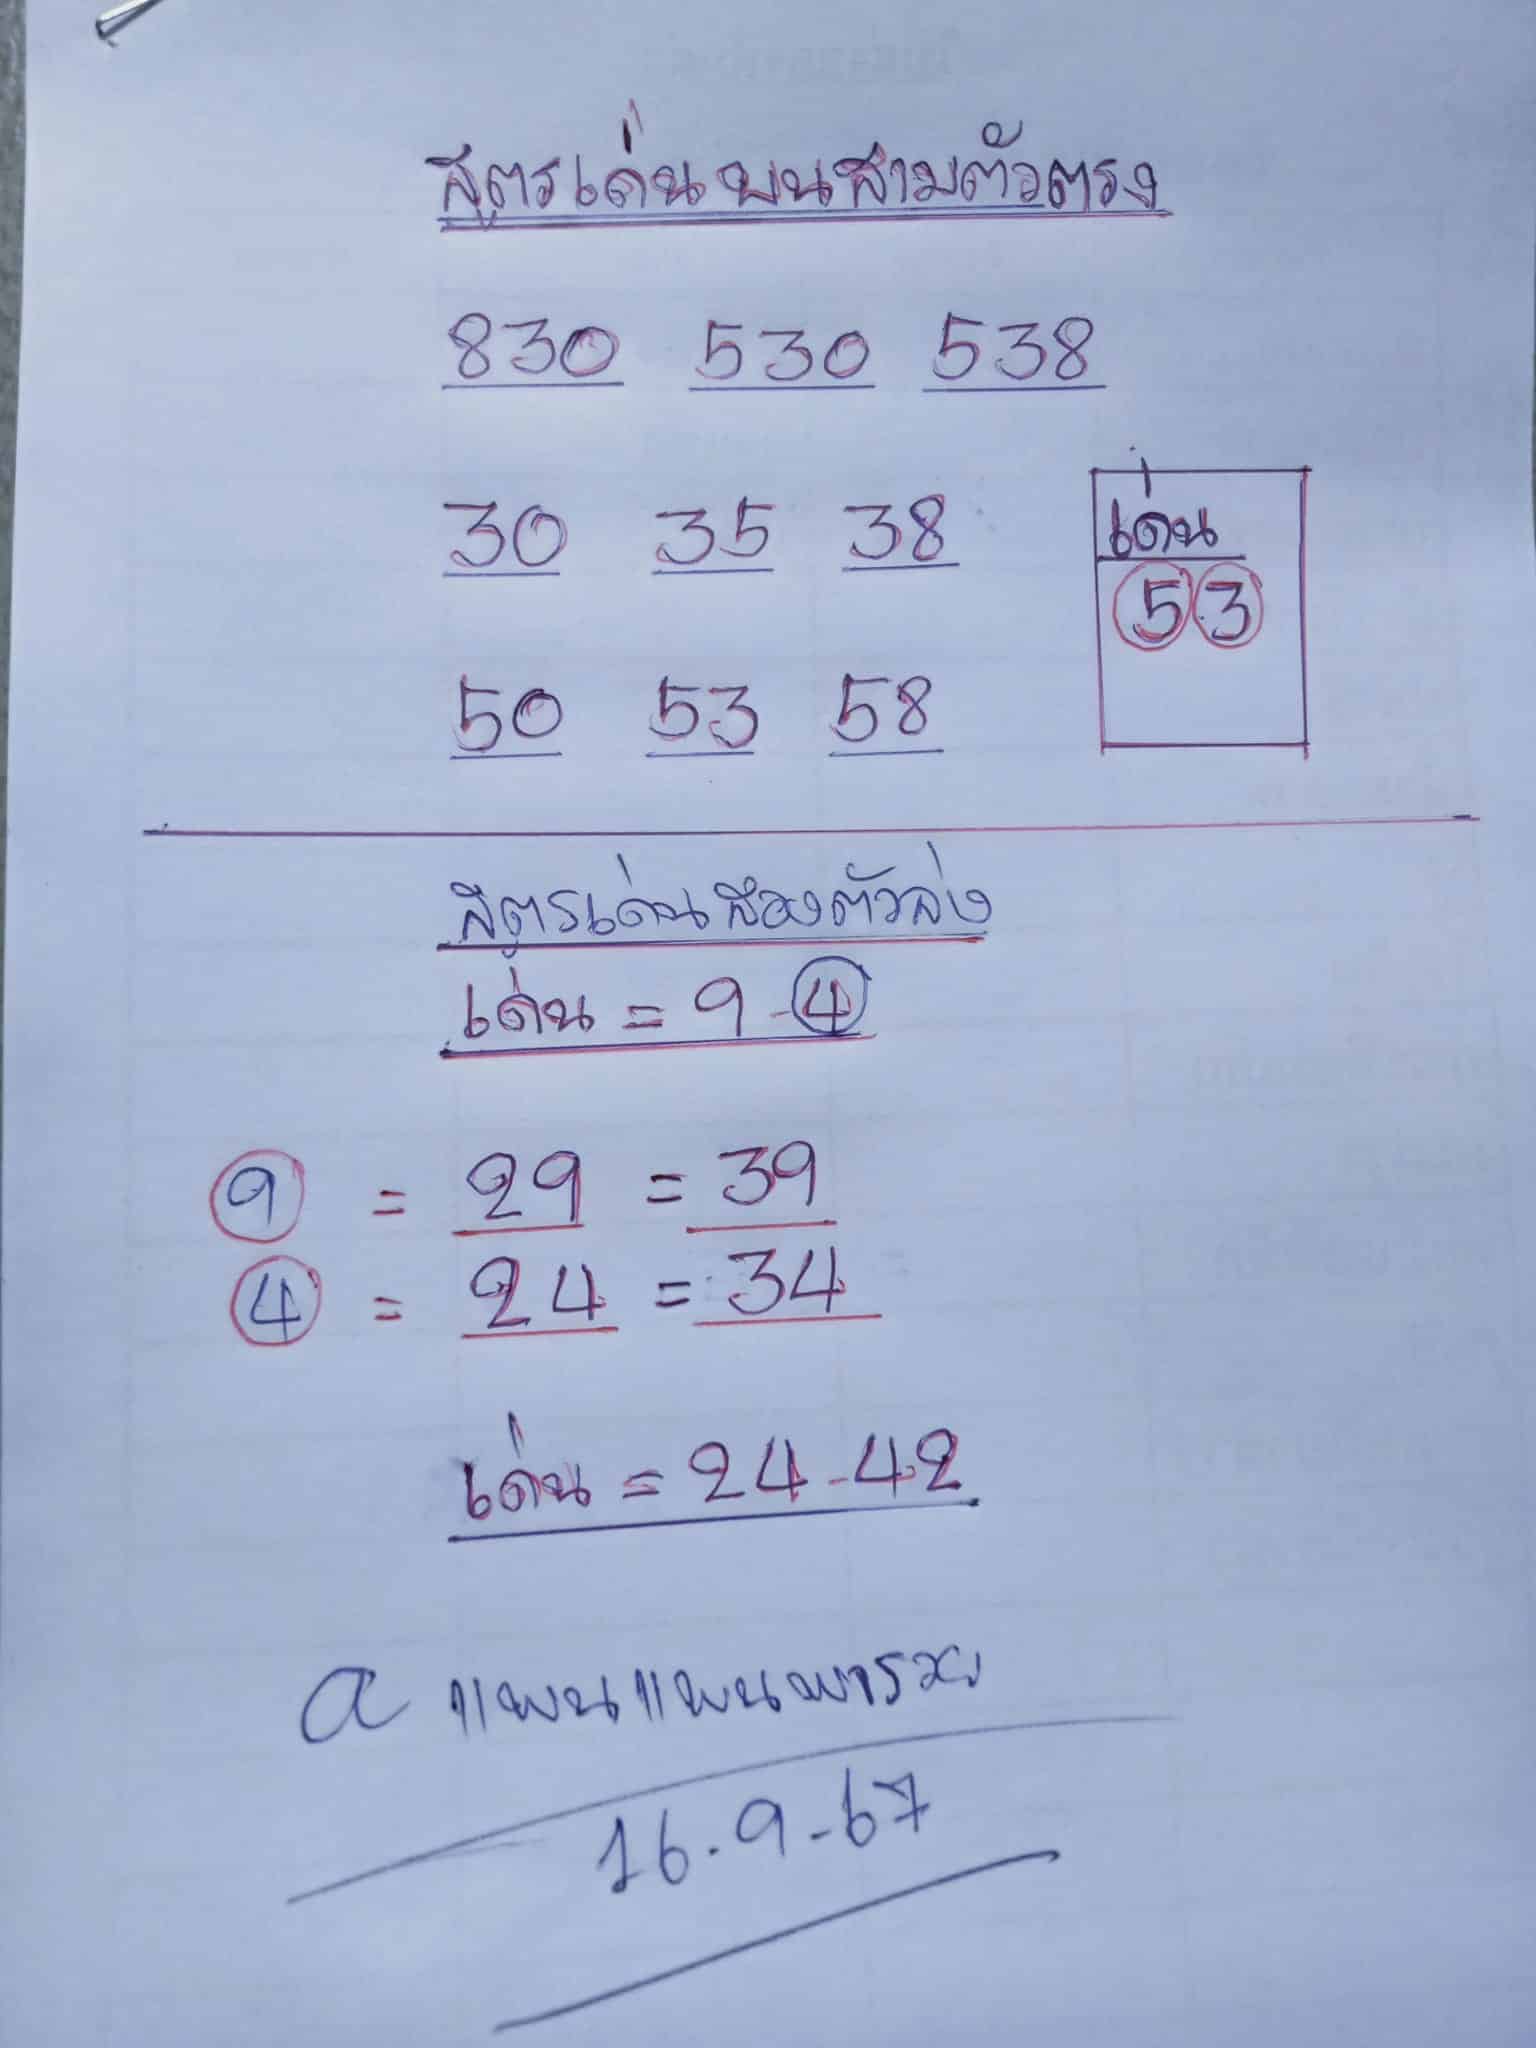 สูตรเด่นบนสามตัวตรง
830 530 538
30 35 38
เด่น
53
50 53 58
สูตรเด่นสองตัวล่ง
เด่น = 9 - 4
9 = 29 = 39
4 = 24 = 34
เด่น = 24 - 42
a แพนแพนพารวย
16.9-67